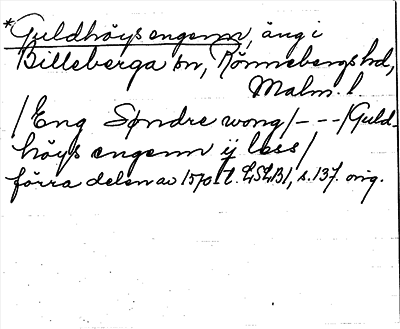 *Guldhöys engenn, äng i
Billeberga sn, Rönnebergs hd,
Malm. l.
/Eng Søndre wong/ - - - /Guld-
höys engenn ij less/
förra delen av 1570 t. LSLB1, s. 137. orig.